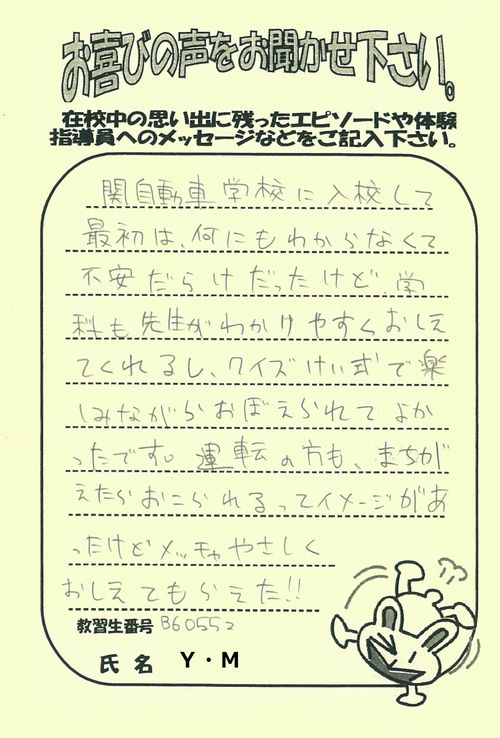 お喜びの声をお聞かせ下さい。
在校中の思い出に残ったエピソードや体験
指導員へのメッセージなどをご記入下さい。
関自動車学校に入校して
最初は、何にもわからなくて
不安だらけだったけど、学
科も先生がわかりやすくおしえ
てくれるし、クイズけい式で楽
しみながらおぼえられてよか
ったです。運転の方も、まちが
えたらおこられるってイメージがあ
ったけどメッチャやさしく
おしえてもらえた!!
教習生番号 B60552
氏名 Y・M